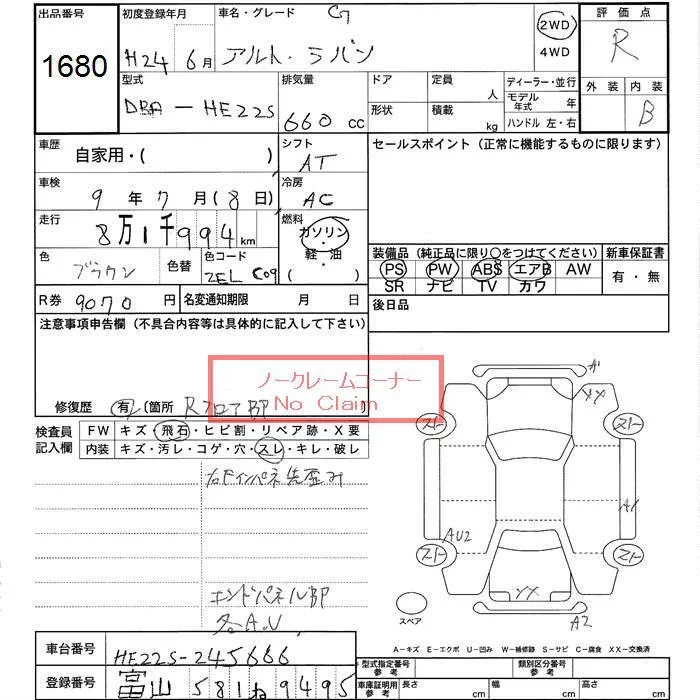 出品番号
1680
初度登録年月
H24 6月
車名・グレード
アルト・ラパン G
2WD
4WD
評価点
R
型式
DBA-HE22S
排気量
660 cc
ドア
定員
人
形状
積載
kg
ディーラー・並行
モデル年式 年
ハンドル 左・右
外装
内装
B
車歴
自家用・( )
シフト
AT
セールスポイント(正常に機能するものに限ります)
車検
9年 7月(8日)
冷房
AC
走行
8万1千994km
燃料
ガソリン
・
軽・油
・
( )
色
ブラウン
色替
色コード
ZEL C09
装備品(純正品に限り○をつけてください)
PS PW ABS エアB AW
SR ナビ TV カワ
新車保証書
有・無
R券
9070円
名変通知期限
月 日
後日品
注意事項申告欄(不具合内容等は具体的に記入して下さい)
ノークレームコーナー
No Claim
修復歴
有(箇所 Rフロア部 )
検査員記入欄
FW キズ・飛石・ヒビ割・リペア跡・X要
内装 キズ・汚レ・コゲ・穴・スレ・キレ・破レ
右Fインパネ先歪み
エンドパネル部
各A.U
A1
XX
スト
スト
A1
AU2
スト
スト
XX
A2
スペア
A-キズ E-エクボ U-凹み W-補修跡 S-サビ C-腐食 XX-交換済
車台番号
HE22S-245666
登録番号
富山 581 ね 9495
型式指定番号
参考
類別区分番号
参考
車庫証明用
参考
長さ
cm
幅
cm
高さ
cm